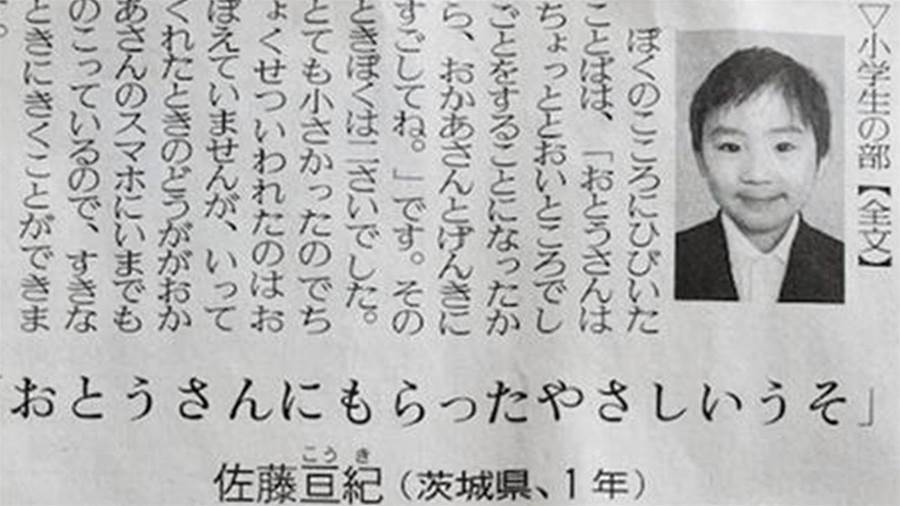 ▽小学生の部【全文】
ぼくのこころにひびいた
ことばは、「おとうさんは
ちょっととおいところでし
ごとをすることになったか
ら、おかあさんとげんきに
すごしてね。」です。その
ときぼくは二さいでした。
とても小さかったのでち
ょくせついわれたのはお
ぼえていませんが、いって
くれたときのどうががおか
あさんのスマホにいまでも
のこっているので、すきな
ときにきくことができま
。
「おとうさんにもらったやさしいうそ」
こうき
佐藤亘紀（茨城県、1年）